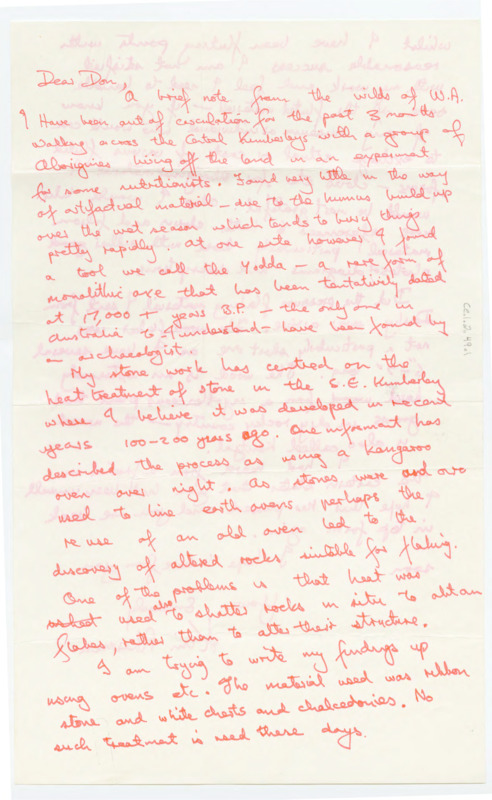 Dear Don,
A brief note from the wilds of W.A.
I Have been out of circulation for the past 3 months
walking across the Central Kimberleys with a group of
Aborigines living off the land in an experiment
for some nutritionists. Found very little in the way
of artifactual material – due to the humus build up
over the wet season which tends to bury things
pretty rapidly. At one site however I found
a tool we call the Yodda – a rare form of
monolithic axe that has been tentatively dated
at 17,000 + years B.P. – the only one in
Australia to – I understand – have been found by
an archaeologist.
My stone work has centred on the
heat treatment of stone in the S.E. Kimberley
where I believe it was developed in recent
years 100-200 years ago. One informant has
described the process as using a kangaroo
oven over night. As stones were and are
used to line earth ovens perhaps the
re use of an old oven led to the
discovery of altered rocks suitable for flaking.
One of the problems is that heat was
also
used to shatter rocks in situ to obtain
flakes, rather than to alter their structure.
I am trying to write my findings up
using ovens etc. The material used was ribbon
stone and white cherts and chalcedonies. No
such treatment is used these days.